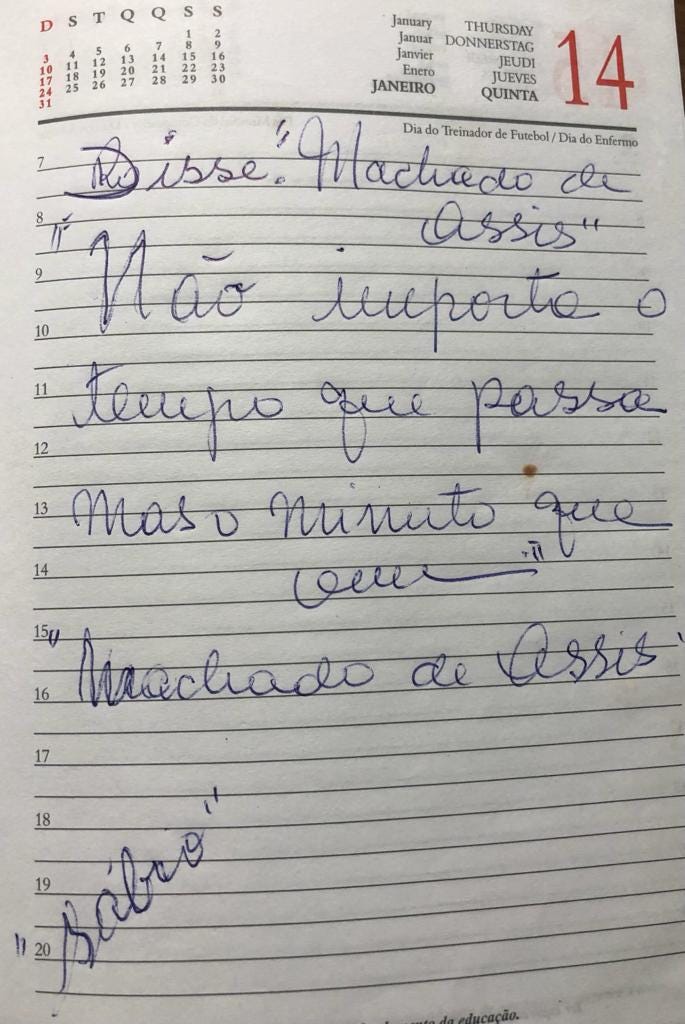 D S T Q Q S S
1 2
3 4 5 6 7 8 9
10 11 12 13 14 15 16
17 18 19 20 21 22 23
24 25 26 27 28 29 30
31
January THURSDAY
Januar DONNERSTAG
Janvier JEUDI
Enero JUEVES
JANEIRO QUINTA
14
Dia do Treinador de Futebol / Dia do Enfermo
7 Disse: "Machado de
8 Assis"
9 "Não importa o
10
11 tempo que passa
12
13 mas o minuto que
14 vem"
15 "Machado de Assis"
16
17
18
19 "Sábio"
20
da educação.